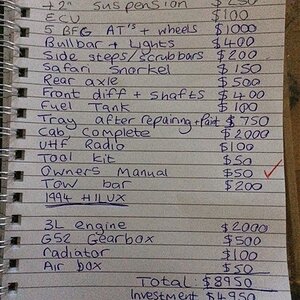 +2" suspension $250
ECU $100
5 BFG AT's + wheels $1000
Bullbar + Lights $400
Side steps/scrubbars $200
Safari Snorkel $150
Rear axle $500
Front diff + shafts $400
Fuel Tank $100
Tray after repairing + Paint $750
Cab, complete $2000
UHF Radio $100
Tool Kit $50
Owners Manual $50
Tow bar $200
1994 HILUX
3L engine $2000
G52 Gearbox $500
radiator $100
Air Box $50
Total: $8950
Investment $4950